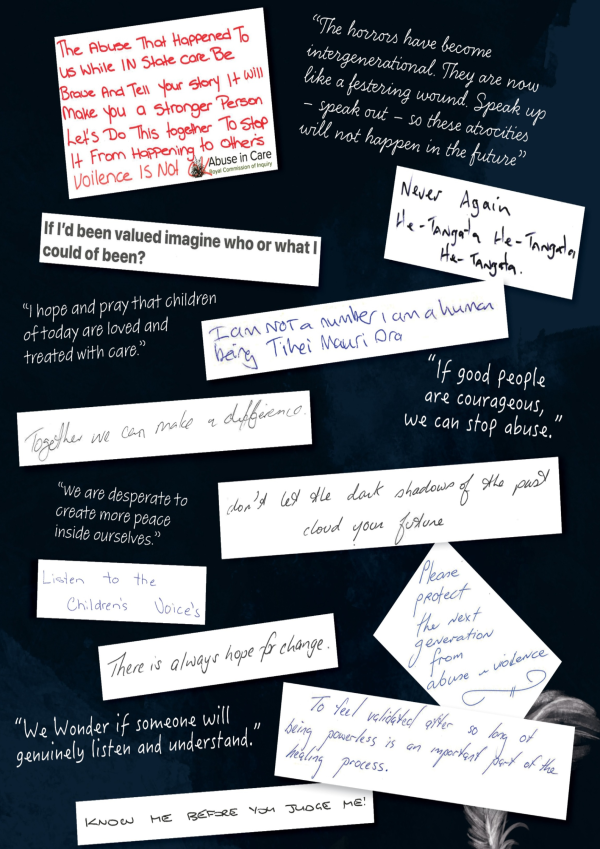 The Abuse That Happened To
us While IN State care. Be
Brave And Tell Your story It Will
Make you a stronger Person
Let's Do This together To Stop
It From Happening to other's
Voilence IS Not
Abuse in Care
Royal Commission of Inquiry
“The horrors have become
intergenerational. They are now
like a festering wound. Speak up
– speak out – so these atrocities
will not happen in the future”
Never Again
He-Tangata He-Tangata,
He-Tangata.
If I’d been valued imagine who or what I
could of been?
“I hope and pray that children
of today are loved and
treated with care.”
I am NOT a number i am a human
being Tihei Mauri Ora
“If good people
are courageous,
we can stop abuse.”
Together we can make a difference.
“We are desperate to
create more peace
inside ourselves.”
don't let the dark shadows of the past
cloud your future
Listen to the
Children's Voice's
Please
protect
the next
generation
from
abuse & violence
There is always hope for change.
“We Wonder if someone will
genuinely listen and understand.”
To feel validated after so long of
being powerless is an important part of the
healing process.
KNOW ME BEFORE YOU JUDGE ME!